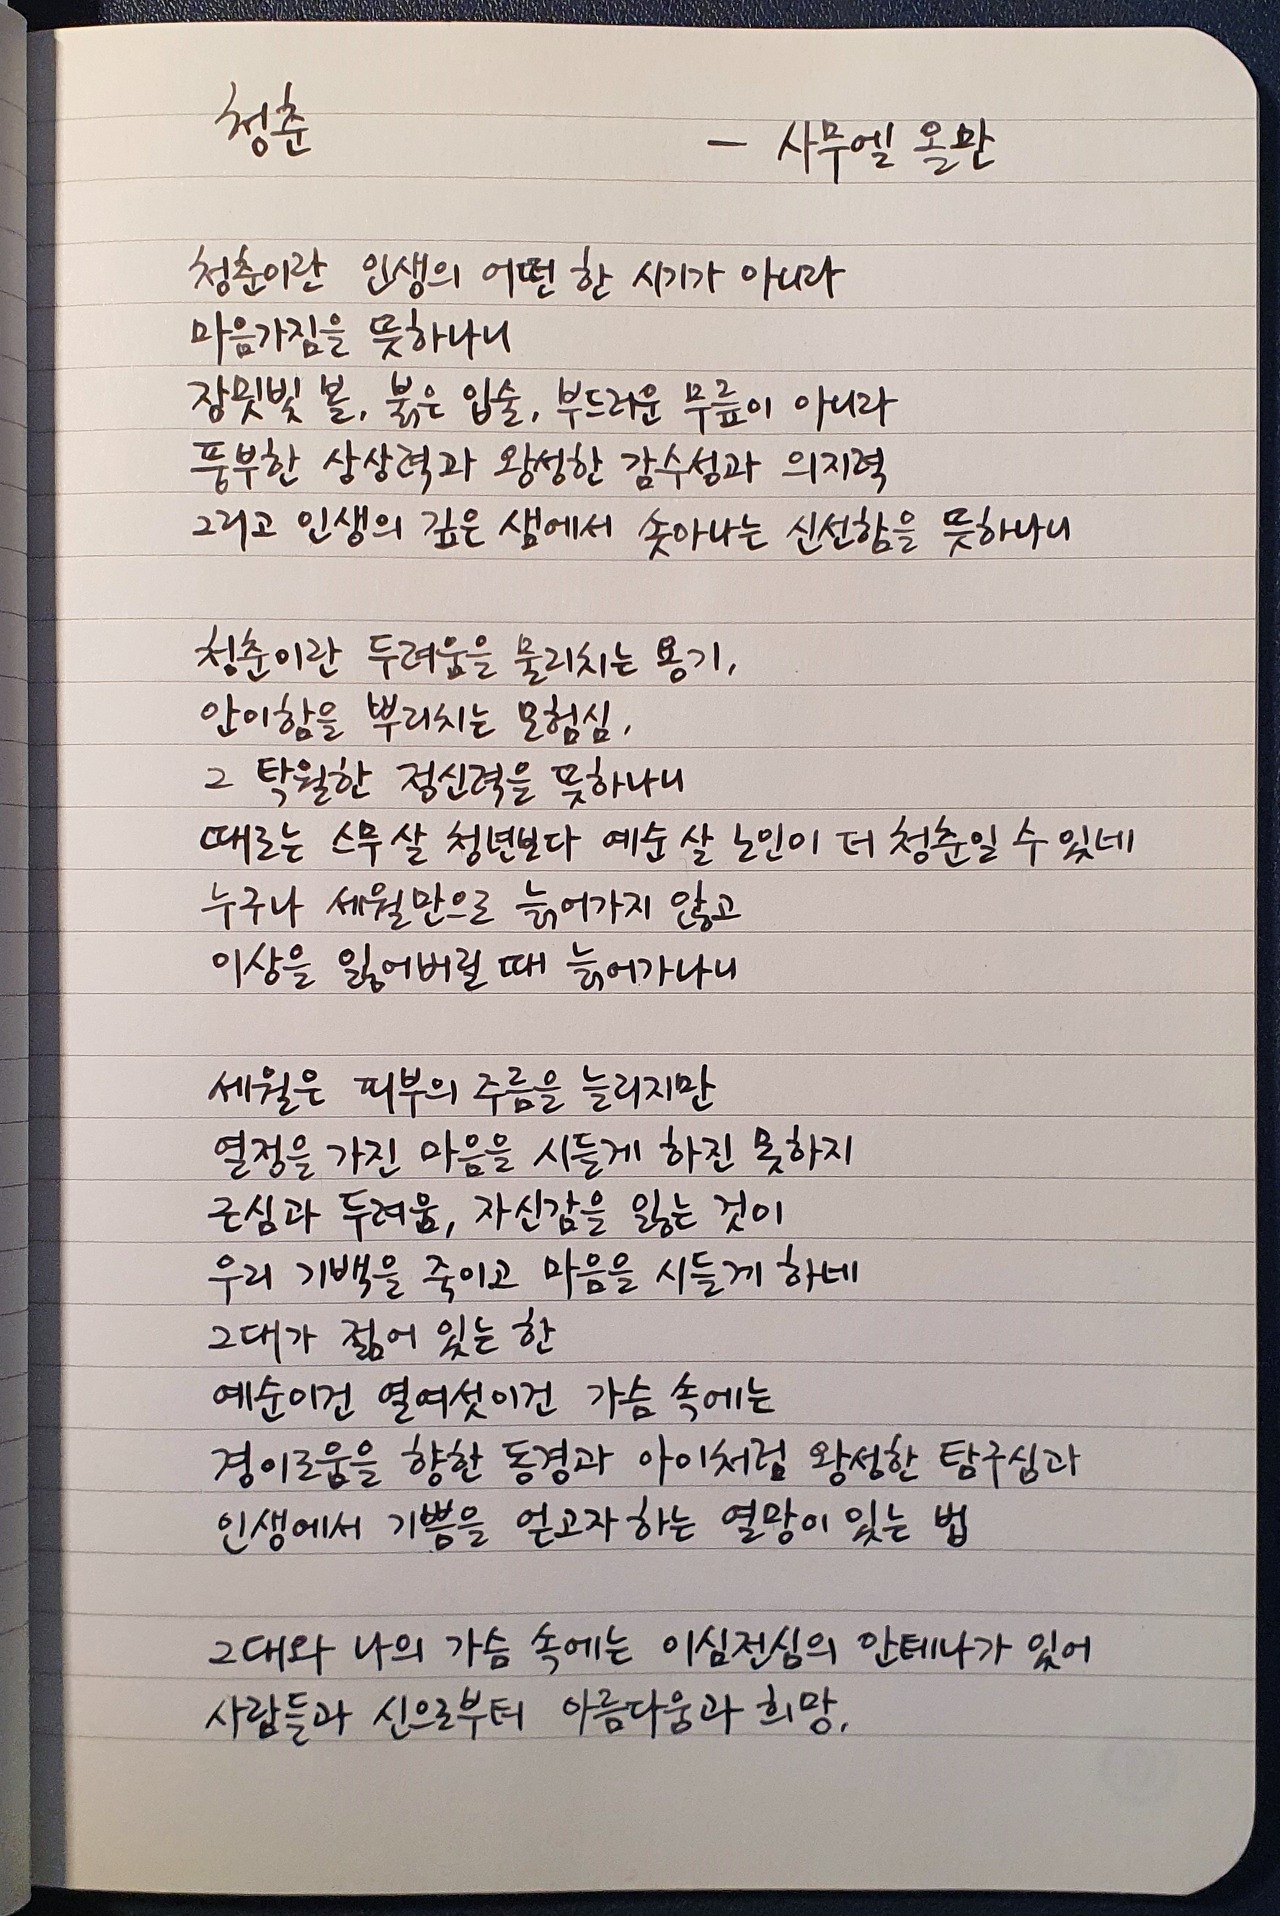 청춘
- 사무엘 올만
청춘이란 인생의 어떤 한 시기가 아니라
마음가짐을 뜻하나니
장밋빛 볼, 붉은 입술, 부드러운 무릎이 아니라
풍부한 상상력과 왕성한 감수성과 의지력
그리고 인생의 깊은 샘에서 솟아나는 신선함을 뜻하나니
청춘이란 두려움을 물리치는 용기,
안이함을 뿌리치는 모험심,
그 탁월한 정신력을 뜻하나니
때로는 스무 살 청년보다 예순 살 노인이 더 청춘일 수 있네
누구나 세월만으로 늙어가지 않고
이상을 잃어버릴 때 늙어가나니
세월은 피부의 주름을 늘리지만
열정을 가진 마음을 시들게 하진 못하지
근심과 두려움, 자신감을 잃는 것이
우리 기백을 죽이고 마음을 시들게 하네
그대가 젊어 있는 한
예순이건 열여섯이건 가슴 속에는
경이로움을 향한 동경과 아이처럼 왕성한 탐구심과
인생에서 기쁨을 얻고자 하는 열망이 있는 법
그대와 나의 가슴 속에는 이심전심의 안테나가 있어
사람들과 신으로부터 아름다움과 희망,